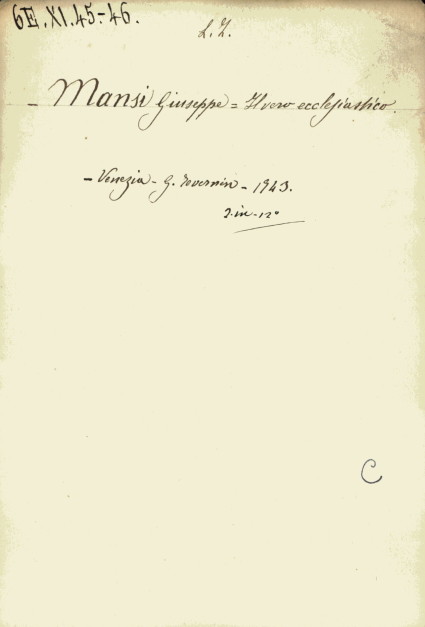 6E.XI.45-46.
L. Z.
- Mansi Giuseppe = Il vero ecclesiastico.
- Venezia - G. Tevernin - 1743.
2. in-12°
C